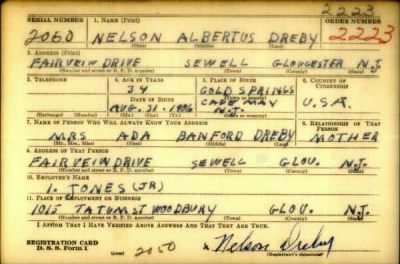 2223
SERIAL NUMBER 1. NAME (Print) ORDER NUMBER
2060 NELSON ALBERTUS DREBY 2223
(First) (Middle) (Last)
2. ADDRESS (Print)
FAIRVEIW DRIVE SEWELL GLOUCESTER N.J.
(Number and street or R. F. D. number) (Town) (County) (State)
3. TELEPHONE 4. AGE IN YEARS 5. PLACE OF BIRTH 6. COUNTRY OF CITIZENSHIP
34 COLD SPRINGS
DATE OF BIRTH CAPE MAY U.S.A.
AUG. 31-1906 N.J.
(Exchange) (Number) (Mo.) (Day) (Yr.) (State or country)
7. NAME OF PERSON WHO WILL ALWAYS KNOW YOUR ADDRESS 8. RELATIONSHIP OF THAT PERSON
MRS ADA BANFORD DREBY MOTHER
(Mr., Mrs., Miss) (First) (Middle) (Last)
9. ADDRESS OF THAT PERSON
FAIRVEIW DRIVE SEWELL GLOU. N.J.
(Number and street or R. F. D. number) (Town) (County) (State)
10. EMPLOYER'S NAME
I. JONES (JR)
11. PLACE OF EMPLOYMENT OR BUSINESS
1015 TATUM ST WOODBURY GLOU. N.J.
(Number and street or R. F. D. number) (Town) (County) (State)
I AFFIRM THAT I HAVE VERIFIED ABOVE ANSWERS AND THAT THEY ARE TRUE.
REGISTRATION CARD
D. S. S. Form 1 2050 Nelson Dreby
(Registrant's signature)